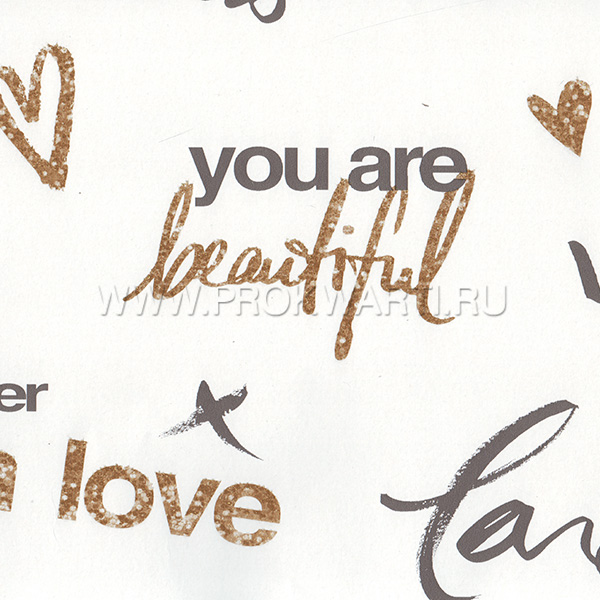 you are
beautiful
WWW.PROKWARTI.RU
er
love